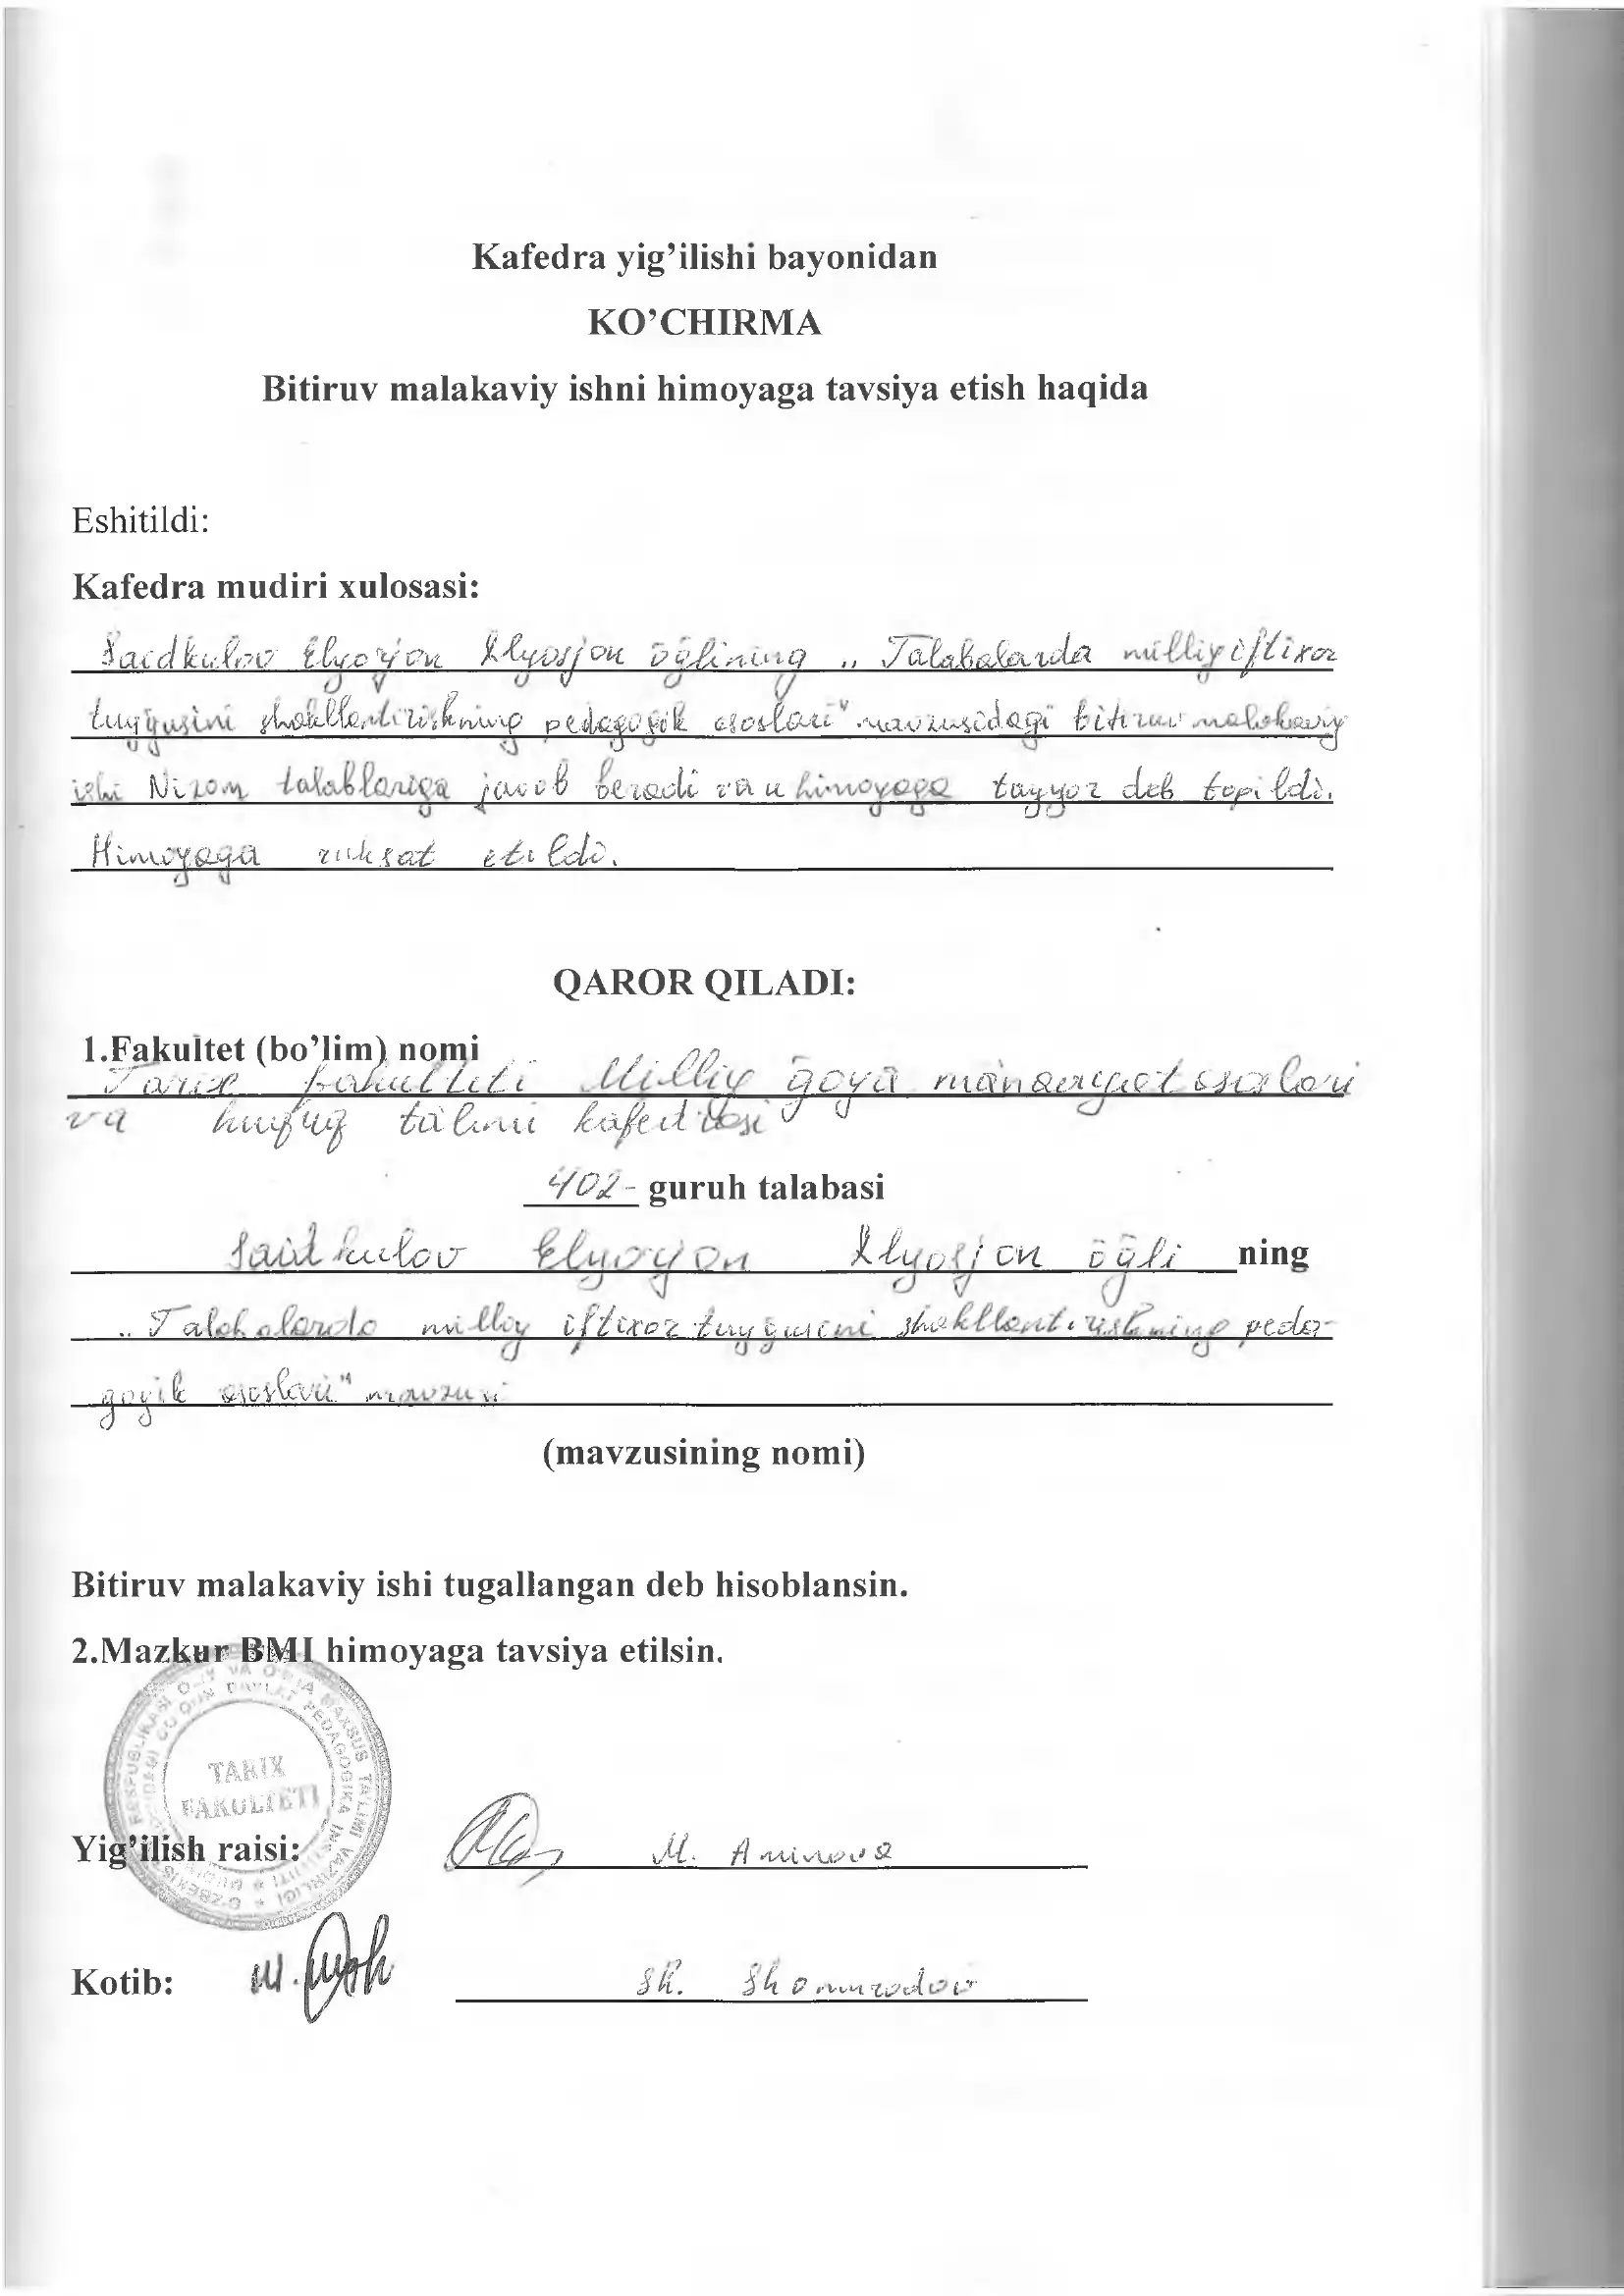 Kafedra yig’ilishi bayonidan
KO’CHIRMA
Bitiruv malakaviy ishni himoyaga tavsiya etish haqida
Eshitildi:
Kafedra mudiri xulosasi:
Saidkulov Elyorjon Ilyosjon õğlining „ Talabalarda milliy iftixor
tuyğusini shakllantirishning pedagogik asoslari" mavzusidagi bitiruv malakaviy
ishi Nizom talablariga javob beradi va u himoyaga tayyor deb topildi.
Himoyaga ruhsat etildi.
QAROR QILADI:
1.Fakultet (bo’lim) nomi
Tarix fakulteti Milliy ğoya mànaviyat asoslari
va huquq tàlimi kafedrasi
402- guruh talabasi
Saidkulov Elyorjon Ilyosjon õğli ning
„ Talabalarda milliy iftixor tuyğusini shakllantirishning peda-
gogik asoslari" mavzusi
(mavzusining nomi)
Bitiruv malakaviy ishi tugallangan deb hisoblansin.
2.Mazkur BMI himoyaga tavsiya etilsin.
TARIX
FAKULTETI
Yig’ilish raisi: M. Aminova
Kotib: Sh. Shomurodov